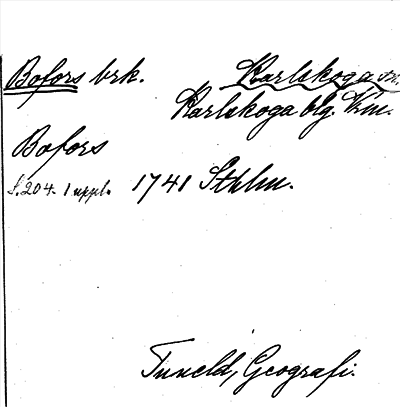 Bofors brk. Karlskoga sn.
Karlskoga blg. Vm.
Bofors
s. 204. 1 uppl. 1741 Sthlm.
Tuneld, Geografi.